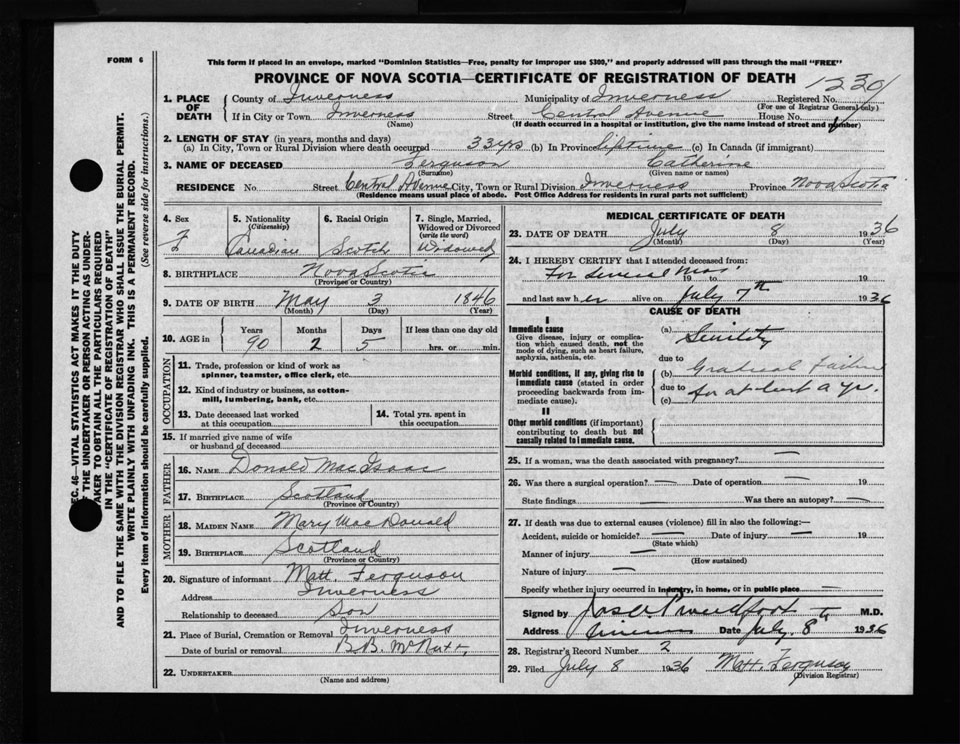 FORM 6
This form if placed in an envelope, marked "Dominion Statistics—Free, penalty for improper use $300," and properly addressed will pass through the mail "FREE"
PROVINCE OF NOVA SCOTIA—CERTIFICATE OF REGISTRATION OF DEATH
1. PLACE OF DEATH
County of Inverness Municipality of Inverness Registered No. 1230
(For use of Registrar General only)
If in City or Town Inverness Street Central Avenue House No.
(Name) (If death occurred in a hospital or institution, give the name instead of street and number)
2. LENGTH OF STAY (in years, months and days)
(a) In City, Town or Rural Division where death occurred 33 yrs (b) In Province Liftime (c) In Canada (if immigrant)
3. NAME OF DECEASED Ferguson Catherine
(Surname) (Given name or names)
RESIDENCE No. Street Central Avenue City, Town or Rural Division Inverness Province Nova Scotia
(Residence means usual place of abode. Post Office Address for residents in rural parts not sufficient)
4. Sex F
5. Nationality (Citizenship) Canadian
6. Racial Origin Scotch
7. Single, Married, Widowed or Divorced (write the word) Widowed
8. BIRTHPLACE Nova Scotia
(Province or Country)
9. DATE OF BIRTH May 3 1846
(Month) (Day) (Year)
10. AGE in Years Months Days If less than one day old
90 2 5 hrs. or min.
OCCUPATION
11. Trade, profession or kind of work as spinner, teamster, office clerk, etc.
12. Kind of industry or business, as cotton-mill, lumbering, bank, etc.
13. Date deceased last worked at this occupation
14. Total yrs. spent in this occupation
15. If married give name of wife or husband of deceased
FATHER
16. NAME Donald MacIsaac
17. BIRTHPLACE Scotland
(Province or Country)
MOTHER
18. MAIDEN NAME Mary MacDonald
19. BIRTHPLACE Scotland
(Province or Country)
20. Signature of informant Matt. Ferguson
Address Inverness
Relationship to deceased Son
21. Place of Burial, Cremation or Removal Inverness
Date of burial or removal B.B. McNutt,
22. UNDERTAKER
(Name and address)
MEDICAL CERTIFICATE OF DEATH
23. DATE OF DEATH July 8 1936
(Month) (Day) (Year)
24. I HEREBY CERTIFY that I attended deceased from:
For several mos. 19 to 19
and last saw her alive on July 7th 1936
CAUSE OF DEATH
I
Immediate cause
Give disease, injury or complication which caused death, not the mode of dying, such as heart failure, asphyxia, asthenia, etc.
(a) Senility
due to
Morbid conditions, if any, giving rise to immediate cause (stated in order proceeding backwards from immediate cause).
(b) Gradual Failure
due to for at least a yr.
(c)
II
Other morbid conditions (if important) contributing to death but not causally related to immediate cause.
25. If a woman, was the death associated with pregnancy? —
26. Was there a surgical operation? — Date of operation — 19
State findings Was there an autopsy? —
27. If death was due to external causes (violence) fill in also the following:—
Accident, suicide or homicide? — Date of injury — 19
(State which)
Manner of injury —
(How sustained)
Nature of injury —
Specify whether injury occurred in industry, in home, or in public place —
Signed by Proudfoot M.D.
Address Date July. 8th 1936
28. Registrar's Record Number 2
29. Filed July 8 1936 Matt. Ferguson
(Division Registrar)
SEC. 46—VITAL STATISTICS ACT MAKES IT THE DUTY
OF THE UNDERTAKER OR PERSON ACTING AS UNDERTAKER TO OBTAIN ALL THE PARTICULARS REQUIRED
IN THE "CERTIFICATE OF REGISTRATION OF DEATH"
AND TO FILE THE SAME WITH THE DIVISION REGISTRAR WHO SHALL ISSUE THE BURIAL PERMIT.
WRITE PLAINLY WITH UNFADING INK. THIS IS A PERMANENT RECORD.
Every item of information should be carefully supplied. (See reverse side for instructions.)